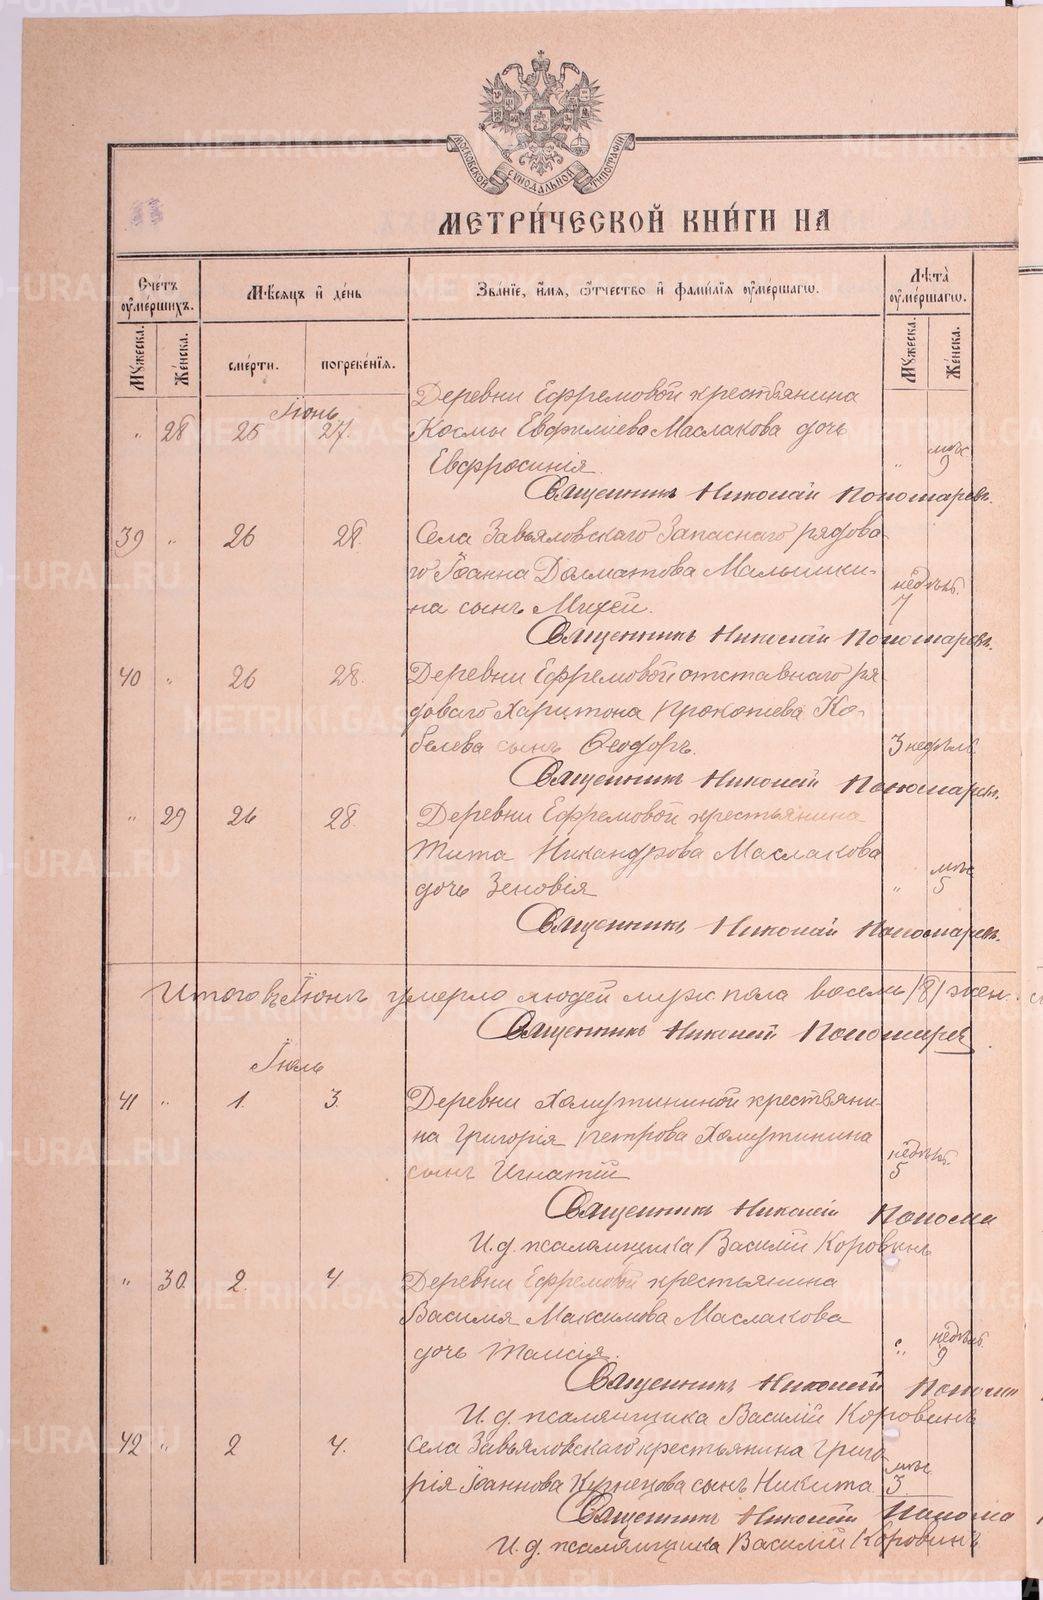 МОСКОВСКОЙ СѴНОДАЛЬНОЙ ТИПОГРАФІИ
МЕТРИ́ЧЕСКОЙ КНИ́ГИ НА
Сче́тъ ᲂуме́ршихъ.
Мѣ́сяцъ и҆ де́нь
Зва́нїе, и҆́мя, ѻ҆́тчество и҆ фами́лїя ᲂуме́ршагѡ.
Лѣ́та ᲂуме́ршагѡ.
Мꙋ́жеска.
Же́нска.
сме́рти.
погребе́нїя.
Мꙋ́жеска.
Же́нска.
Іюнь
Деревни Ефремовой крестьянина
" 28 25 27. Космы Евфилиева Маслакова дочь
Евфросинія. " мѣс 9
Священникъ Николай Пономаревъ.
39 " 26 28. Села Завьяловскаго Запаснаго рядова-
го Іоанна Далматова Малышки-
на сынъ Мифей. недѣль. 7
Священникъ Николай Пономаревъ.
40 " 26 28. Деревни Ефремовой отставнаго ря
доваго Харитона Прокопьева Ко-
белева сынъ Ѳеодоръ. 3 недѣль
Священникъ Николай Пономаревъ.
" 29 26 28. Деревни Ефремовой крестьянина
Тита Никандрова Маслакова
дочь Зеновія " мѣс 5
Священникъ Николай Пономаревъ.
Итого въ Іюнѣ умерло людей муж пола восемь /8/ жен.
Священникъ Николай Пономарев
Іюль
41 " 1. 3. Деревни Хомутининой крестьяни-
на Григорія Петрова Хомутинина
сынъ Игнатій недѣль. 5
Священникъ Николай Понома
И. д. псаломщика Василій Коровинъ
" 30. 2. 4. Деревни Ефремовой крестьянина
Василія Максимова Маслакова
дочь Таисія. " недѣль. 9
Священникъ Николай Поном
И. д. псаломщика Василій Коровинъ
42 " 2 4. Села Завьяловскаго крестьянина Григо-
рія Іоаннова Кузнецова сынъ Никита мѣс 3.
Священникъ Николай Понома
И. д. псаломщика Василій Коровинъ
METRIKI.GASO-URAL.RU